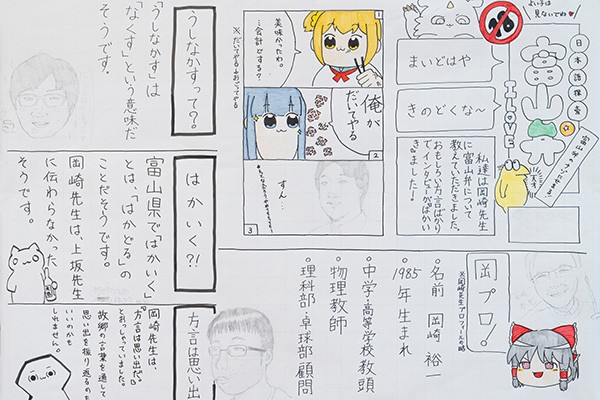 よい子は
見ないでね♥
日本語探克
I LOVE
天才
まいどはや
きのどくな〜
私達は岡崎先生
に富山弁について
教えていただきました。
おもしろい方言ばかり
でインタビューがはかい
きました!
1
美味かったわ。
…会計どする?
2
俺が
だいてやる
※だいてやる=おごってやる
3
すん…
岡プロ!
※岡崎先生プロフィールの略
・名前 岡崎 裕一
・1985年生まれ
・中学・高等学校教頭
・物理教師
・理科部・卓球部顧問
うしなかすって?。
「うしなかす」は
「なくす」という意味だ
そうです。
はかいく?!
富山県で「はかいく」
とは、「はかどる」の
ことだそうです。
岡崎先生は、上坂先生
に伝わらなかった
そうです。
方言は思い出
岡崎先生は、
「方言は思い出だ。」
とおっしゃていました。
故郷の言葉を通して
思い出を振り返るのも
いいのかも
しれません。